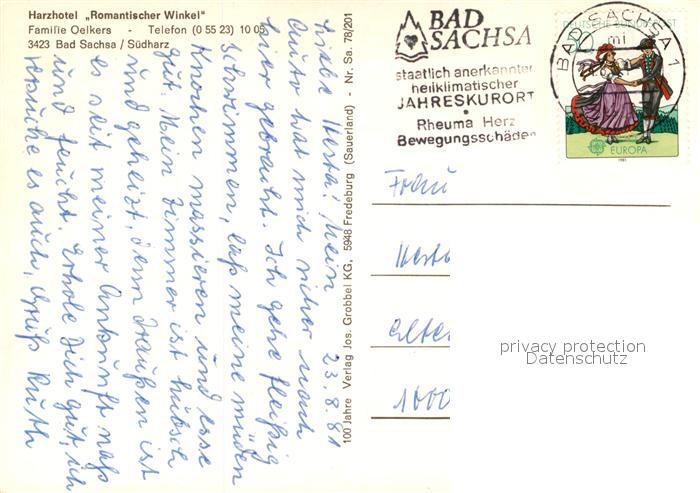 Harzhotel „Romantischer Winkel"
Familie Oelkers - Telefon (0 55 23) 10 05
3423 Bad Sachsa / Südharz
23.8.81
Liebe Herta! Mein
Auto hat mich sicher nach
hier gebracht. Ich gehe fleißig
schwimmen, laß meine müden
Knochen massieren und esse
gut. Mein Zimmer ist hübsch
und geheizt, denn draußen ist
es seit meiner Ankunft naß
und feucht. Erhole Dich gut, ich
versuche es auch, Gruß Ruth
100 Jahre Verlag Jos. Grobbel KG, 5948 Fredeburg (Sauerland) - Nr. Sa. 78/201
BAD
SACHSA
staatlich anerkannter
heilklimatischer
JAHRESKURORT
Rheuma Herz
Bewegungsschäden
DEUTSCHE BUNDESPOST
BAD SACHSA 1
mi
EUROPA
1981
Frau
Hert
1000
privacy protection
Datenschutz